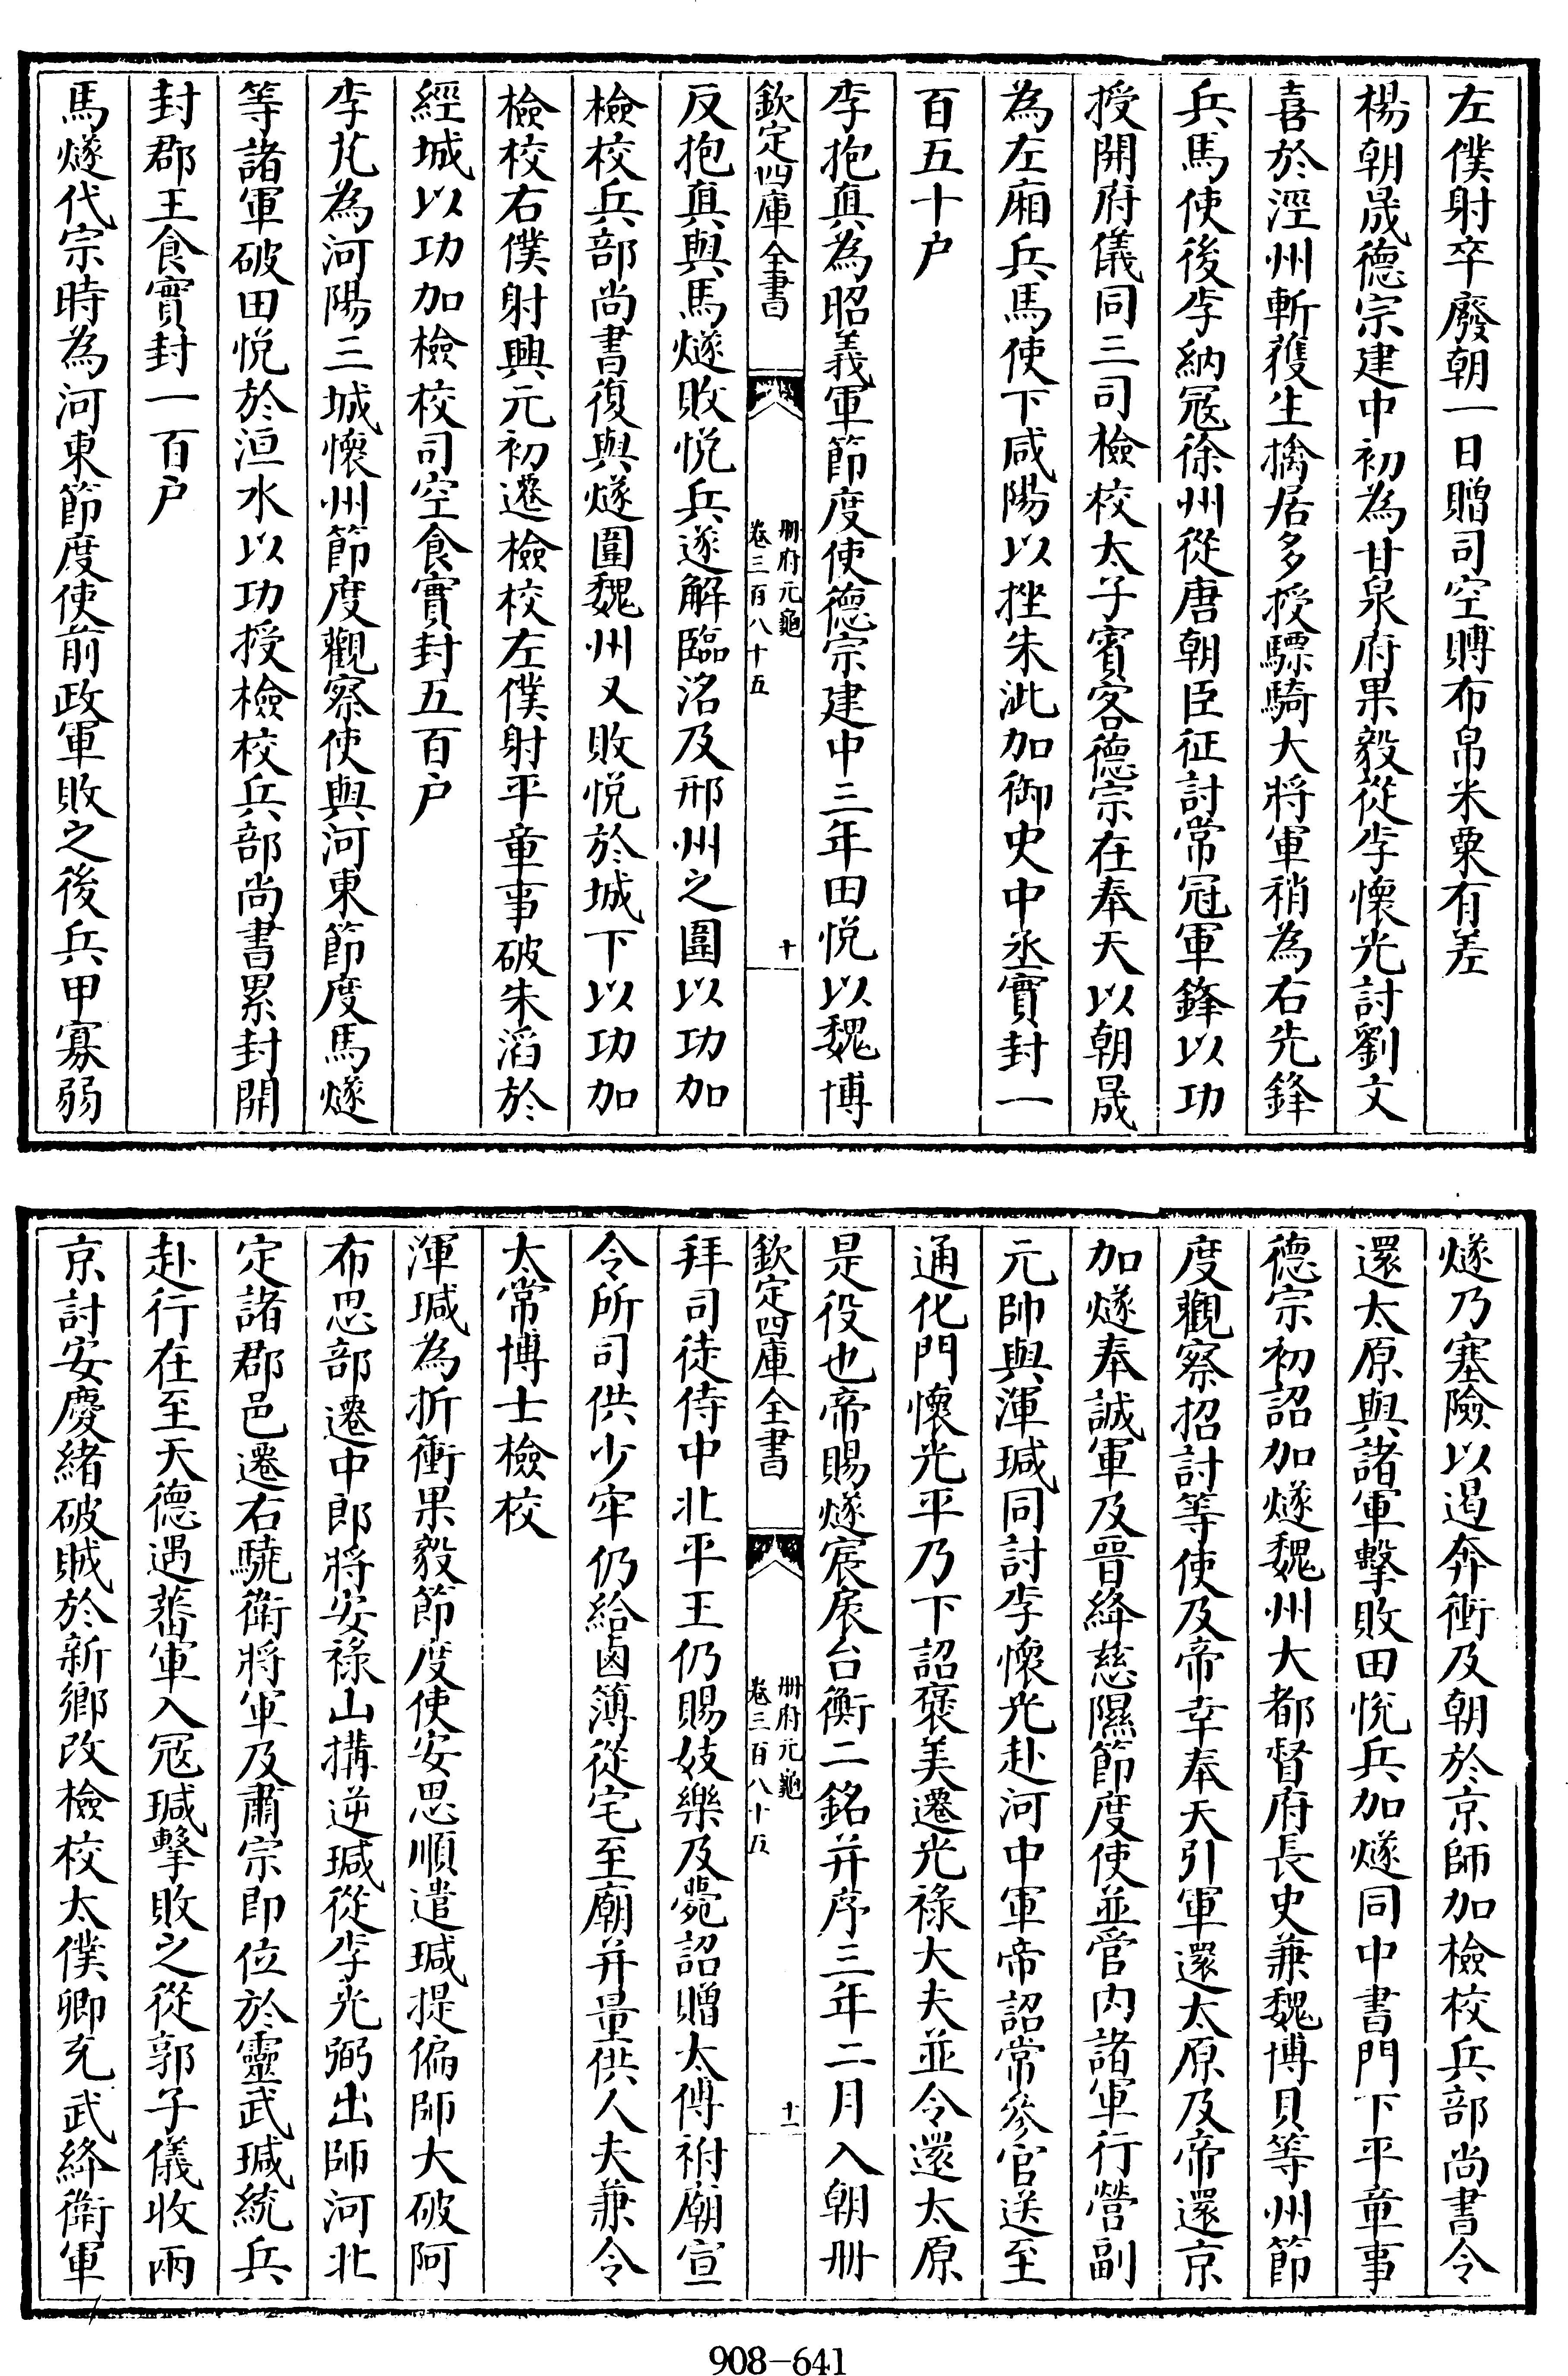 左僕射卒廢朝一日贈司空賻布帛米粟有差
楊朝晟德宗建中初為甘泉府果毅從李懷光討劉文
喜於涇州斬獲生擒居多授驃騎大將軍稍為右先鋒
兵馬使後李納寇徐州從唐朝臣征討常冠軍鋒以功
授開府儀同三司檢校太子賓客德宗在奉天以朝晟
為左廂兵馬使下咸陽以挫朱泚加御史中丞實封一
百五十户
李抱真為昭義軍節度使德宗建中三年田悅以魏博
欽定四庫全書
冊府元龜
卷三百八十五
十
反抱真與馬燧敗悅兵遂解臨洺及邢州之圍以功加
檢校兵部尚書復與燧圍魏州又敗悅於城下以功加
檢校右僕射興元初遷檢校左僕射平章事破朱滔於
經城以功加檢校司空食實封五百户
李艽為河陽三城懷州節度觀察使與河東節度馬燧
等諸軍破田悅於洹水以功授檢校兵部尚書累封開
封郡王食實封一百户
馬燧代宗時為河東節度使前政軍敗之後兵甲寡弱
燧乃塞險以遏奔衝及朝於京師加檢校兵部尚書令
還太原與諸軍擊敗田悅兵加燧同中書門下平章事
德宗初詔加燧魏州大都督府長史兼魏博貝等州節
度觀察招討等使及帝幸奉天引軍還太原及帝還京
加燧奉誠軍及晉絳慈隰節度使並管内諸軍行營副
元帥與渾瑊同討李懷光赴河中軍帝詔常參官送至
通化門懷光平乃下詔褒美遷光祿大夫並令還太原
是役也帝賜燧宸扆台衡二銘并序三年二月入朝冊
欽定四庫全書
冊府元龜
卷三百八十五
十一
拜司徒侍中北平王仍賜妓樂及薨詔贈太傅祔廟宣
令所司供少牢仍給鹵簿從宅至廟并量供人夫兼令
太常博士檢校
渾瑊為折衝果毅節度使安思順遣瑊提偏師大破阿
布思部遷中郎將安祿山搆逆瑊從李光弼出師河北
定諸郡邑遷右驍衛將軍及肅宗即位於靈武瑊統兵
赴行在至天德遇蕃軍入寇瑊擊敗之從郭子儀收兩
京討安慶緒破賊於新鄉改檢校太僕卿充武絳衛軍
908-641